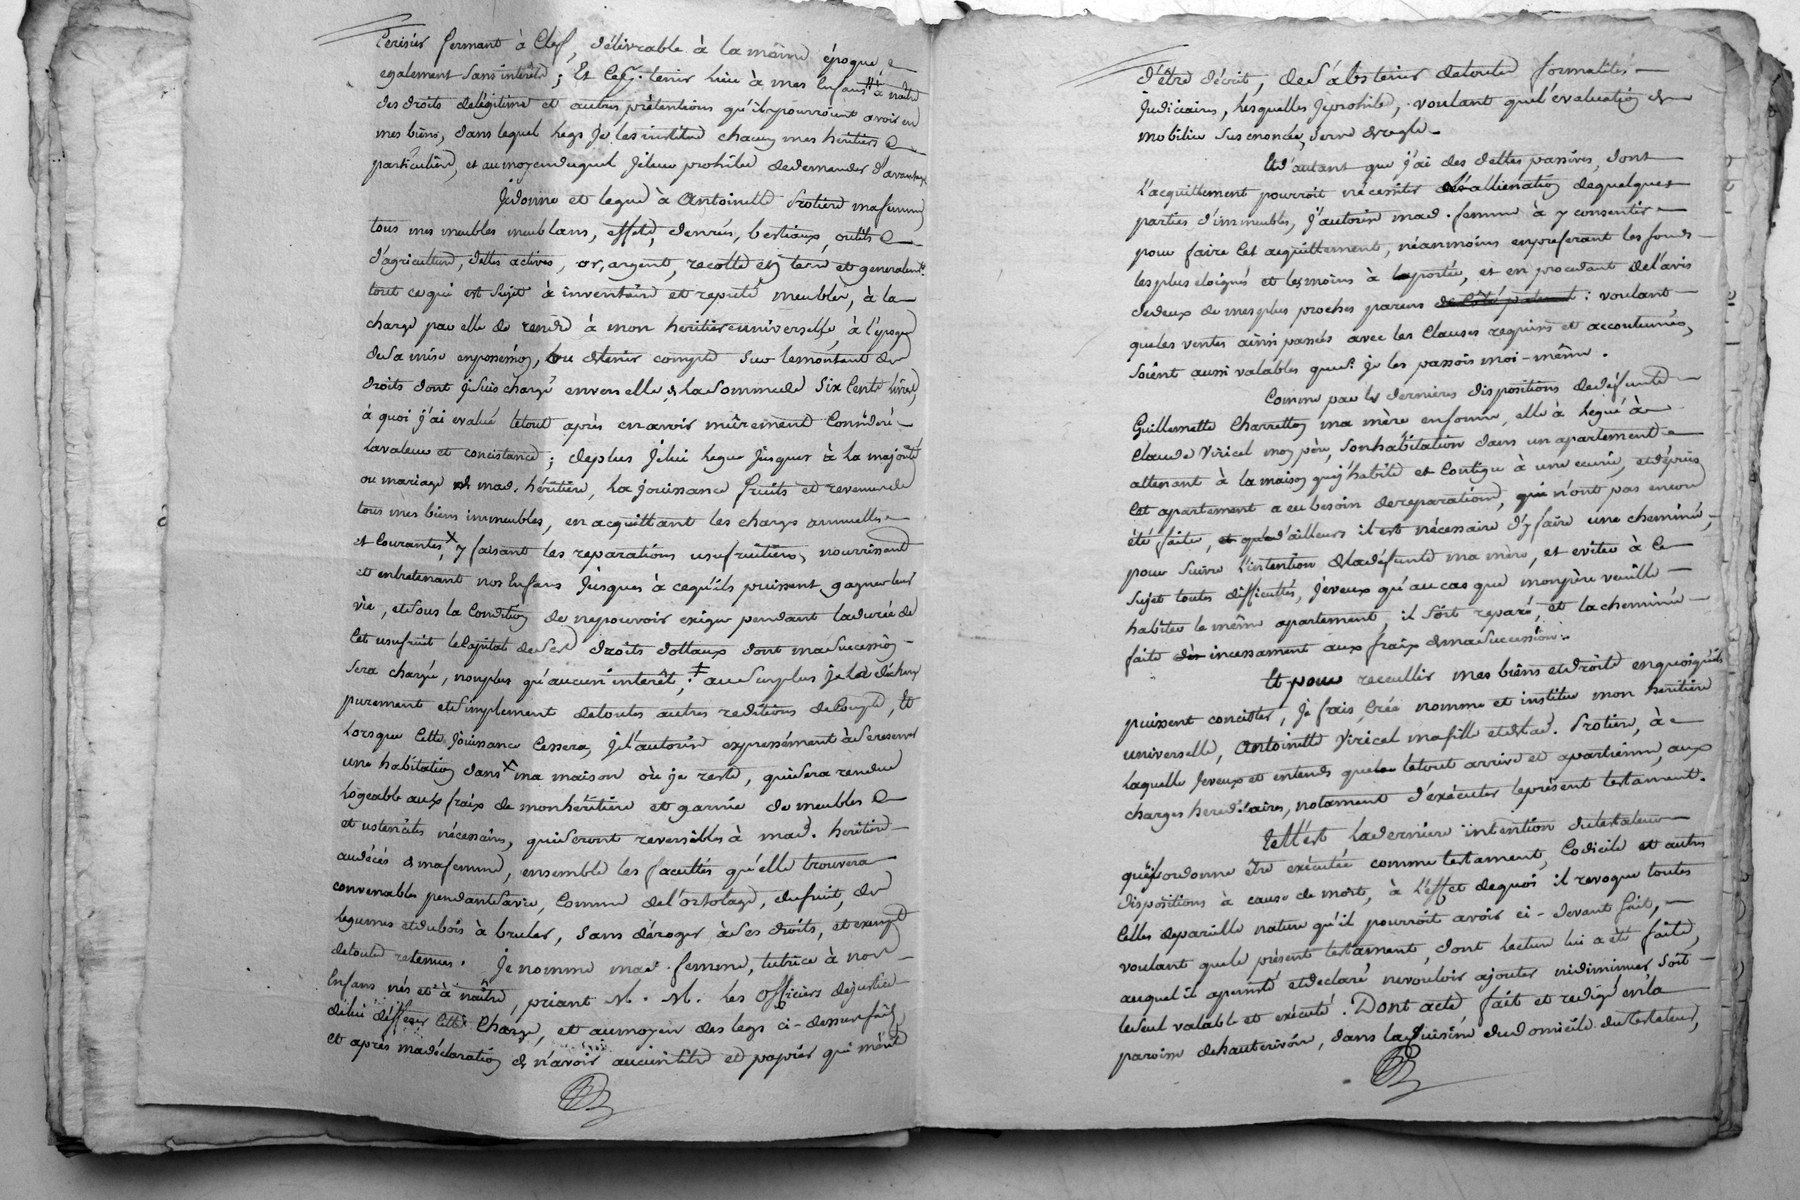 Cerisier fermant à Clef, délivrable à la même époque,
egalement sans interêts ; Et Ce pr. tenir lieu à mes Enfans nés et à naître
des droits delégitime et autres prétentions qu'ils pourroient avoir en
mes biens, dans lequel legs Je les institue chacun mes héritiers
particuliers, et aumoyenduquel Jeleur prohibe dedemander d'avantage
Jedonne et legue à Antoinette Frotière mafemme,
tous mes meubles meublans, effets, denrées, bestiaux, outils
d'agriculture, dettes actives, or, argent, recolte en terre et generalemt.
tout ce qui est sujet à inventaire et reputé meubles, à la
charge par elle de rendre à mon heritiere universelle à l'époque
desa mise enpossession, ou detenir compte sur lemontant de
droits dont je suis chargé envers elle, de lasommede Six Cents livres,
à quoi j'ai evalué letout après enavoir mûrement Considéré
lavaleur et concistance ; deplus Jelui legue Jusques à la majorité
ou mariage de mad. héritière, la jouissance fruits et revenus de
tous mes biens immeubles, en acquittant les charges annuelles
et Courantes, y faisant les reparations usufruitières, nourrissant
et entretenant nos Enfans Jusques à cequ'ils puissent gagner leur
vie, etsous la Condition de nepouvoir exiger pendant ladurée de
Cet usufruit leCapital deses droits dottaux dont masuccession
sera chargée, nonplus qu'aucun interêt ; au surplus je la décharge
purement etsimplement detoutes autres redditions deCompte, Et
Lorsque Cette Jouissance Cessera, je l'autorise expressément àsereserver
une habitation dans ma maison où je reste, quisera rendue
Logeable aux fraix de monhéritière et garnie de meubles
et ustenciles nécessaires, quiseront reversibles à mad. heritière
audécès de mafemme, ensemble les facultés qu'elle trouvera
convenables pendantsavie, Comme del'ortolage, dufruit, de
legumes etdubois à bruler, sans déroger àses droits, et exempt
detoute retenue. Je nomme mad. femme, tutrice à nos
Enfans nés et à naître, priant M. M. Les Officiers dejustice
delui défferer Cette Charge, et aumoyen des legs ci-dessus faits,
et après madéclaration de n'avoir aucuntitre et papier qui mérite
d'être décrit, de s'abstenir detoute formalités
Judiciaires, lesquelles Jeprohibe, voulant quel'evaluation de
mobilier susénoncée, serve derègle.
Et d'autant que j'ai des dettes passives, dont
l'acquittement pourroit nécessiter l'alliénation dequelques
parties d'immeubles, j'autorise mad. femme à y consentir
pour faire Cet acquittement, néanmoins enpreferant les fonds
les plus eloignés et les moins à laportée, et en procedant del'avis
dedeux de mesplus proches parens : voulant
queles ventes ainsi passées avec les Clauses requises et accoutumées,
soient aussi valables que si je les passois moi-même.
Comme par les dernieres dispositions dedéfunte
Guillemette Charretton ma mère enforme, elle à Legué à
Claude Viricel mon père, sonhabitation dans un apartement
attenant à la maison quej'habite et Contigu à une ecurie, et depuis
Cet apartement a eu besoin dereparations, qui n'ont pas encore
été faites, et que d'ailleurs il est nécessaire d'y faire une cheminée,
pour suivre l'intention deladéfunte ma mère, et eviter à Ce
sujet toutes difficultés, Jeveux qu'au cas que monpère veuille
habiter le même apartement, il soit reparé, et la cheminée
faite incessament aux fraix de masuccession.
Et pour recueillir mes biens etdroits enquoiqu'ils
puissent concister, Je fais, créé nomme et institue mon heritière
universelle, Antoinette Viricel mafille etdelad. Frotière, à
laquelle Jeveux et entends que letout arrive et apartienne, aux
charges hereditaires, notament d'exécuter leprésent testament.
Telle est La derniere intention dutestateur
qu'il ordonne être exécutée comme testament, Codicile et autres
dispositions à cause de mort, à l'effet dequoi il revoque toutes
Celles depareille nature qu'il pourroit avoir ci-devant fait,
voulant quele présent testament, dont lecture lui a été faite,
auquel il apersisté etdeclaré nevouloir ajouter nidiminuer, soit
leseul valable et exécuté. Dont acte fait et redigé enla
paroisse dehauterivoire, dans la Cuisine dudomicile dutestateur,